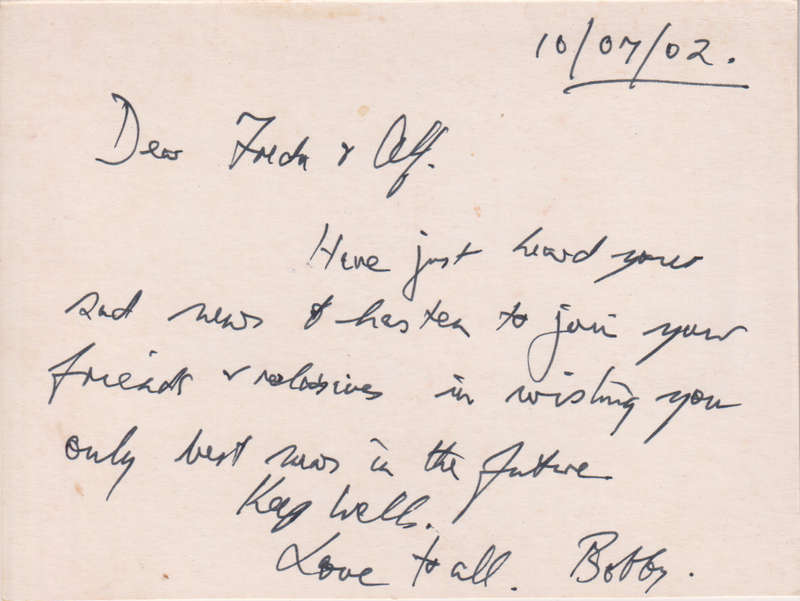 10/07/02.
Dear Freda & Alf.
Have just heard your
sad news & hasten to join your
friends & relatives in wishing you
only best news in the future.
Keep Well.
Love to all. Bobby.